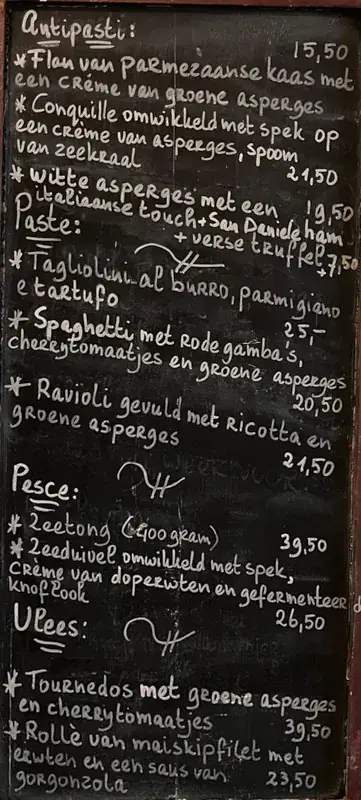 Antipasti:
15,50
* Flan van parmezaanse kaas met
een crème van groene asperges
* Conquille omwikkeld met spek op
een crème van asperges, spoom
van zeekraal 21,50
* Witte asperges met een 19,50
italiaanse touch + San Daniele ham
+ verse truffel +7,50
Paste:
* Tagliolini al burro, parmigiano
e tartufo 25,-
* Spaghetti met rode gamba's,
cherrytomaatjes en groene asperges
20,50
* Ravioli gevuld met ricotta en
groene asperges 21,50
Pesce:
* Zeetong (gram) 39,50
* Zeeduivel omwikkeld met spek,
crème van doperwten en gefermenteerd
knoflook 26,50
Vlees:
* Tournedos met groene asperges
en cherrytomaatjes 39,50
* Rollè van maiskipfilet met
erwten en een saus van
gorgonzola 23,50